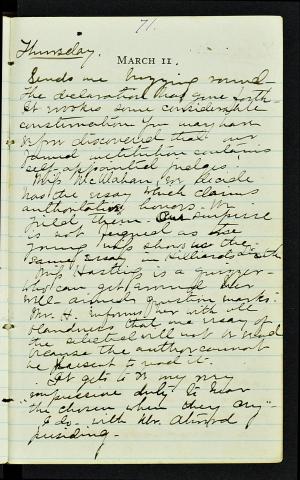 71.
Thursday.
MARCH 11.
Sends me buzzing round.
The declaration has gone forth.
It evokes some considerable
consternation. You may have
before discovered that our
famed institution contains
self-appointed judges.
Miss McMahan we decide
has the essay which claims
authoritatory honors. We
yield them. Our umpire
is not agreed as the
young miss shows us the
same essay in
Miss Hastings is a
who can get around her
well-aimed question marks.
Mr. H. informs her with all
blandness that one essay of
the selected will not be read
because the author cannot
be present to read it.
It gets to be my very
impressive duty to hear
the chosen when they say
I do - with Mr. Atwood
presiding.